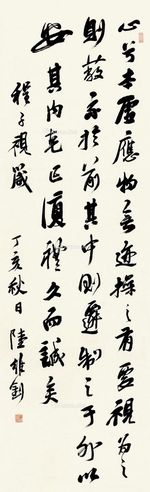 心兮本虛應物無迹操之有要視為之
則蔽交於前其中則遷制之于外以
安其內克己復禮久而誠矣
程子視箴
丁亥秋日陸維釗